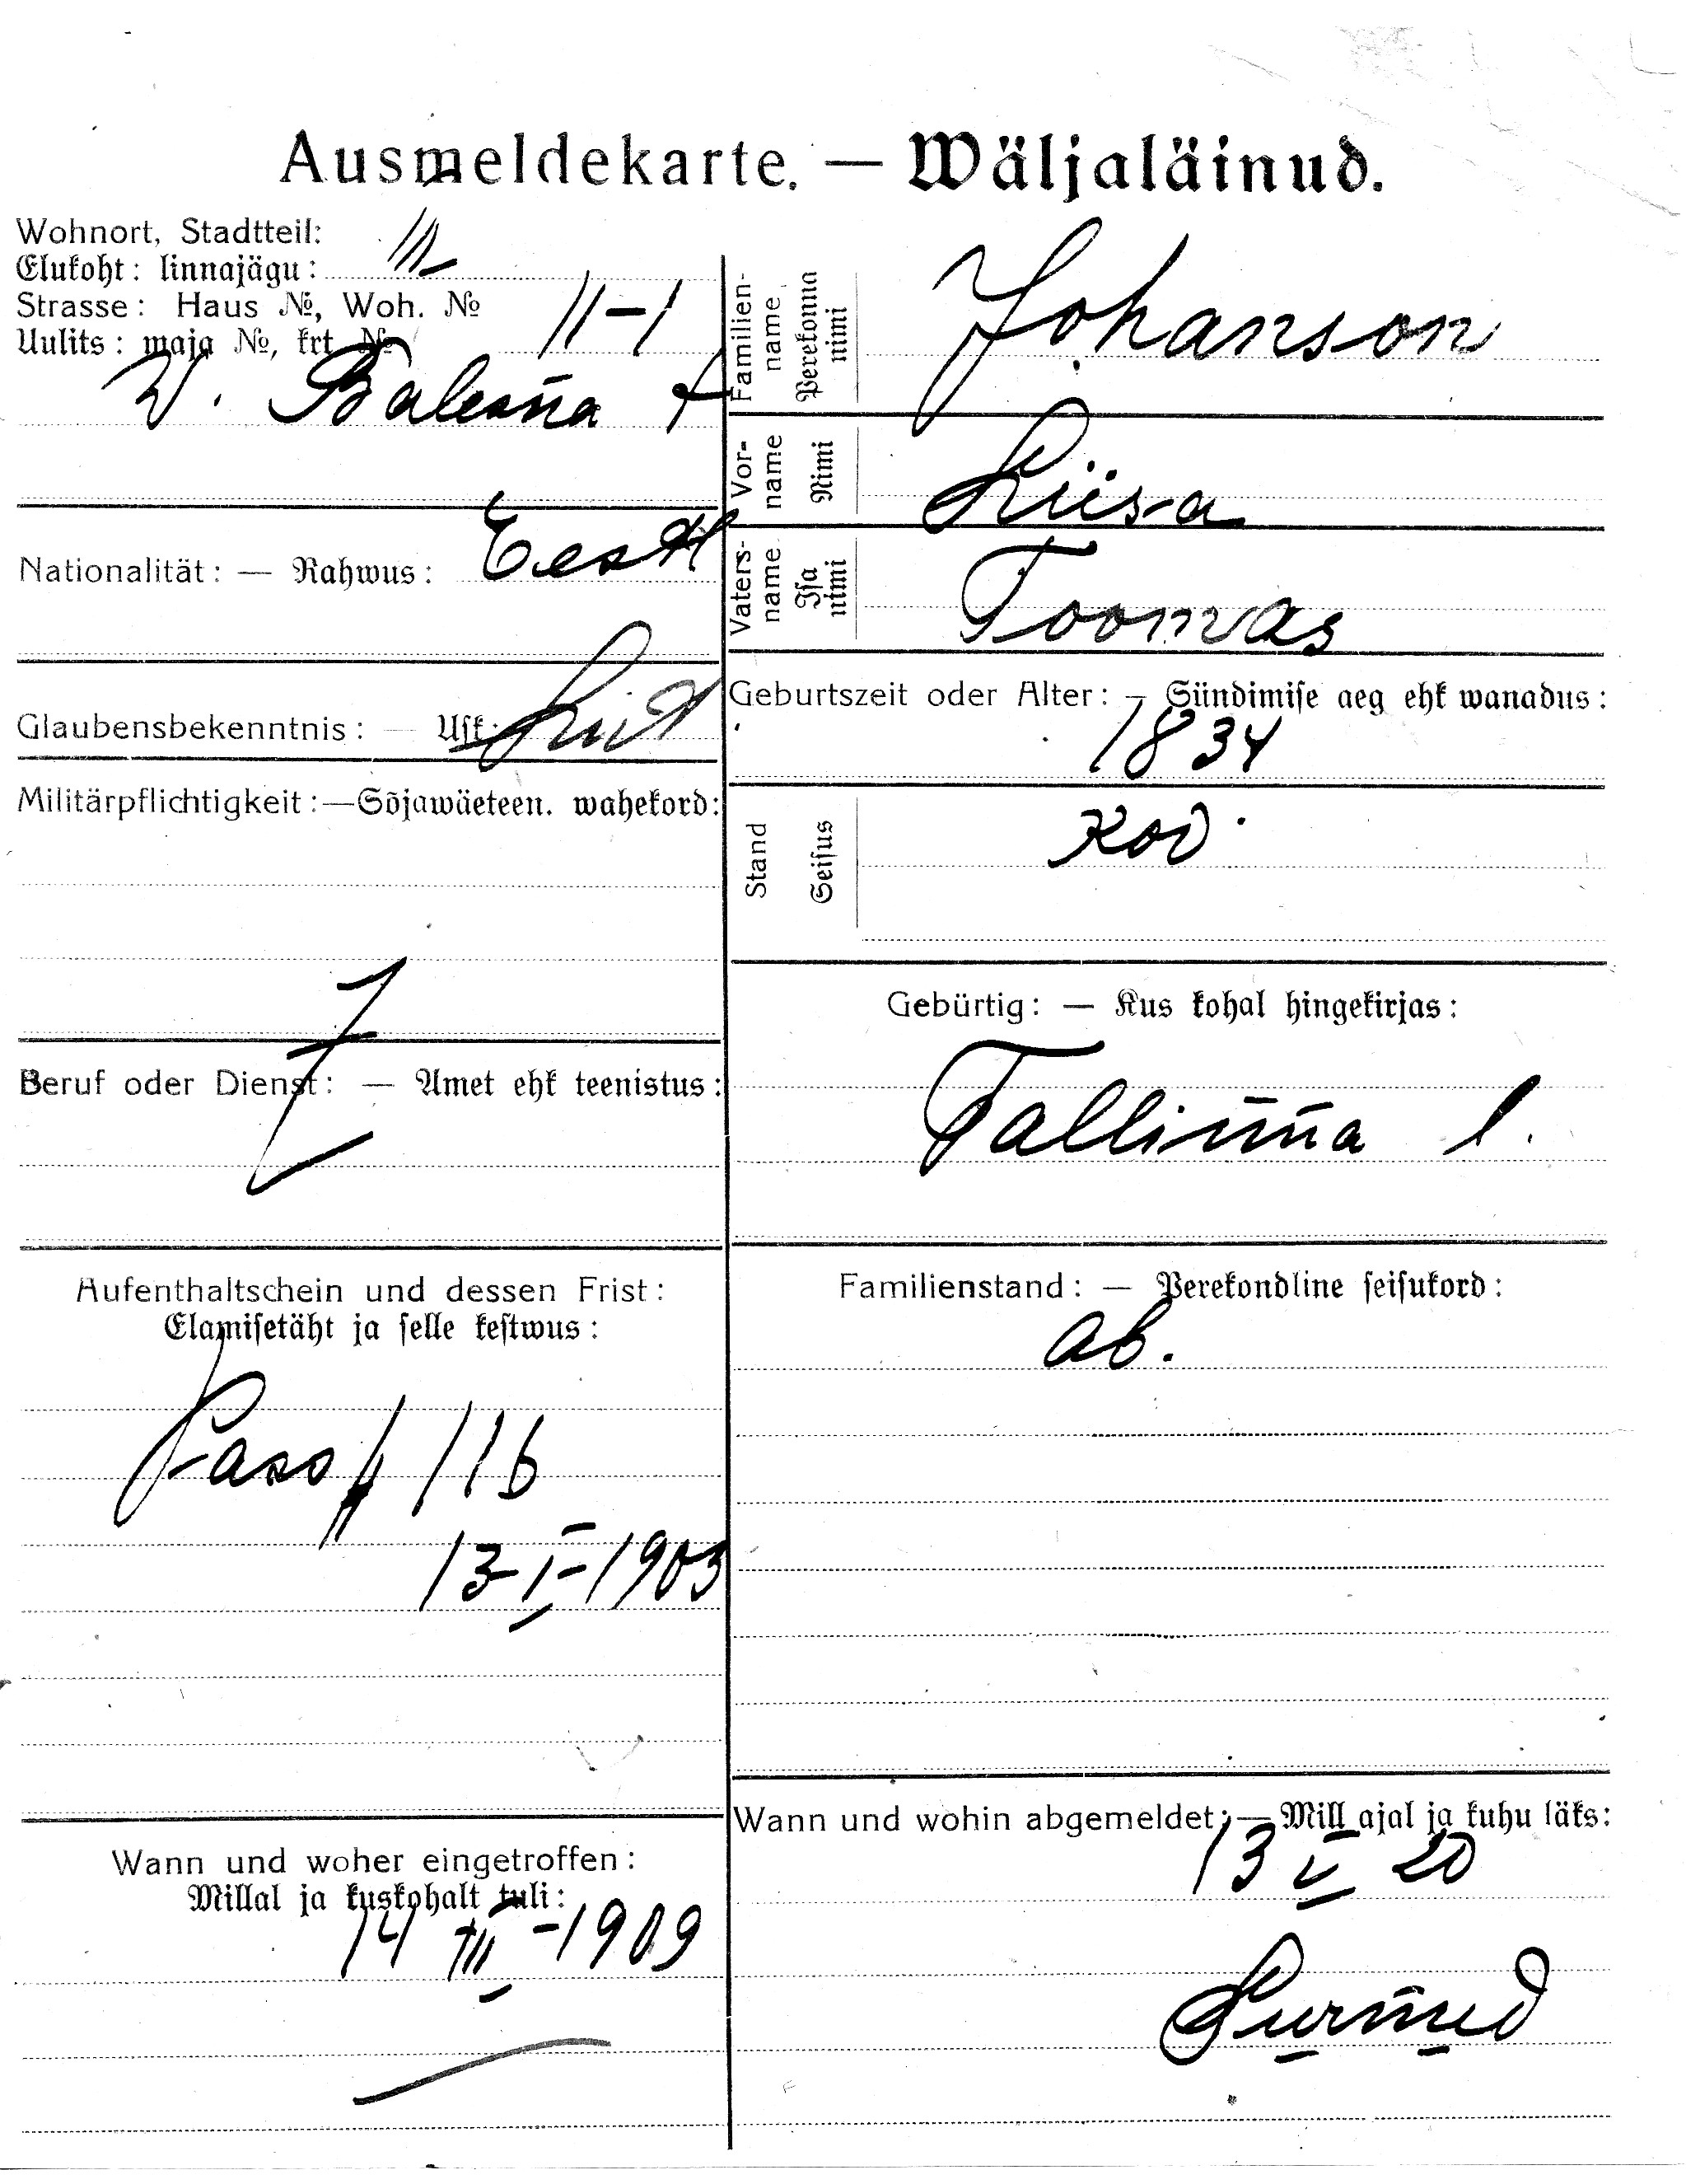 Ausmeldekarte. — Wäljaläinud.
Wohnort, Stadtteil:
Elukoht: linnajägu: III
Strasse: Haus №, Woh. №
Uulits: maja №, krt. № 11-1
W.
Nationalität: — Rahwus: Eesti
Glaubensbekenntnis: — Usk: Lut
Militärpflichtigkeit:—Sõjawäeteen. wahekord:
Beruf oder Dienst: — Amet ehk teenistus:
Aufenthaltschein und dessen Frist:
Elamisetäht ja selle kestwus:
Pass № 116
13-I-1903
Wann und woher eingetroffen:
Millal ja kuskohalt tuli:
14 III -1909
Familien-name Perekonna nimi Johanson
Vor-name Nimi Liisa
Vaters-name Isa nimi Toomas
Geburtszeit oder Alter: — Sündimise aeg ehk wanadus:
1834
Stand Seisus Kod.
Gebürtig: — Kus kohal hingekirjas:
Tallinna l.
Familienstand: — Perekondline seisukord:
ab.
Wann und wohin abgemeldet: — Mill ajal ja kuhu läks:
13 V 20
Surnud